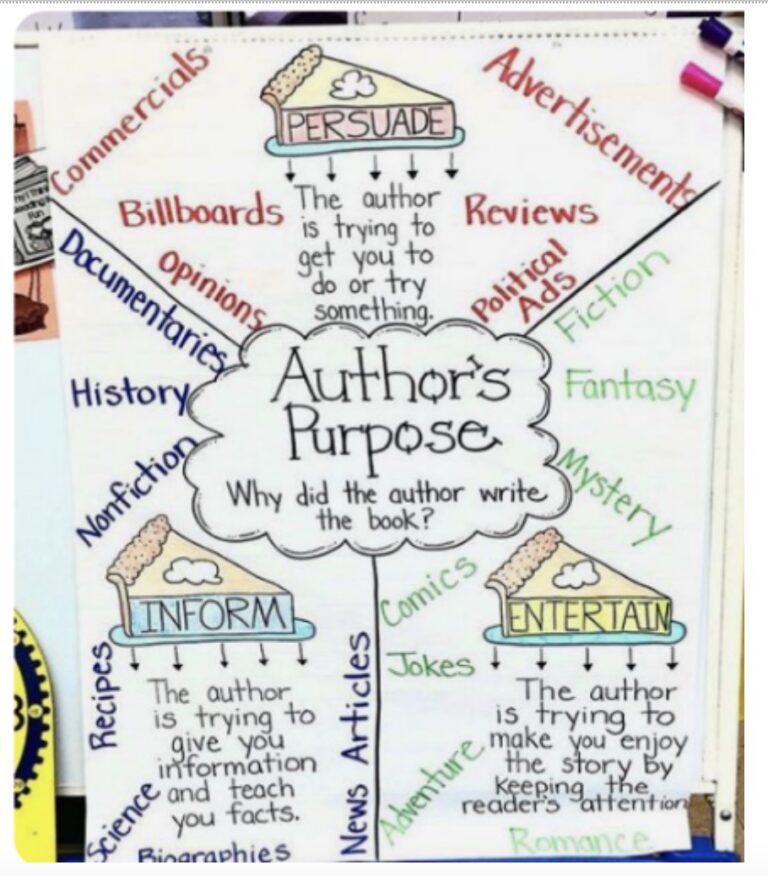 Commercials
PERSUADE
Advertisements
Billboards
The author
is trying to
get you to
do or try
something.
Reviews
Opinions
Political
Ads
Documentaries
History
Nonfiction
Fiction
Fantasy
Mystery
Author's
Purpose
Why did the author write
the book?
INFORM
Recipes
The author
is trying to
give you
information
and teach
you facts.
Science
Biographies
News Articles
Comics
ENTERTAIN
Jokes
The author
is trying to
make you enjoy
the story by
keeping the
reader's attention
Adventure
Romance